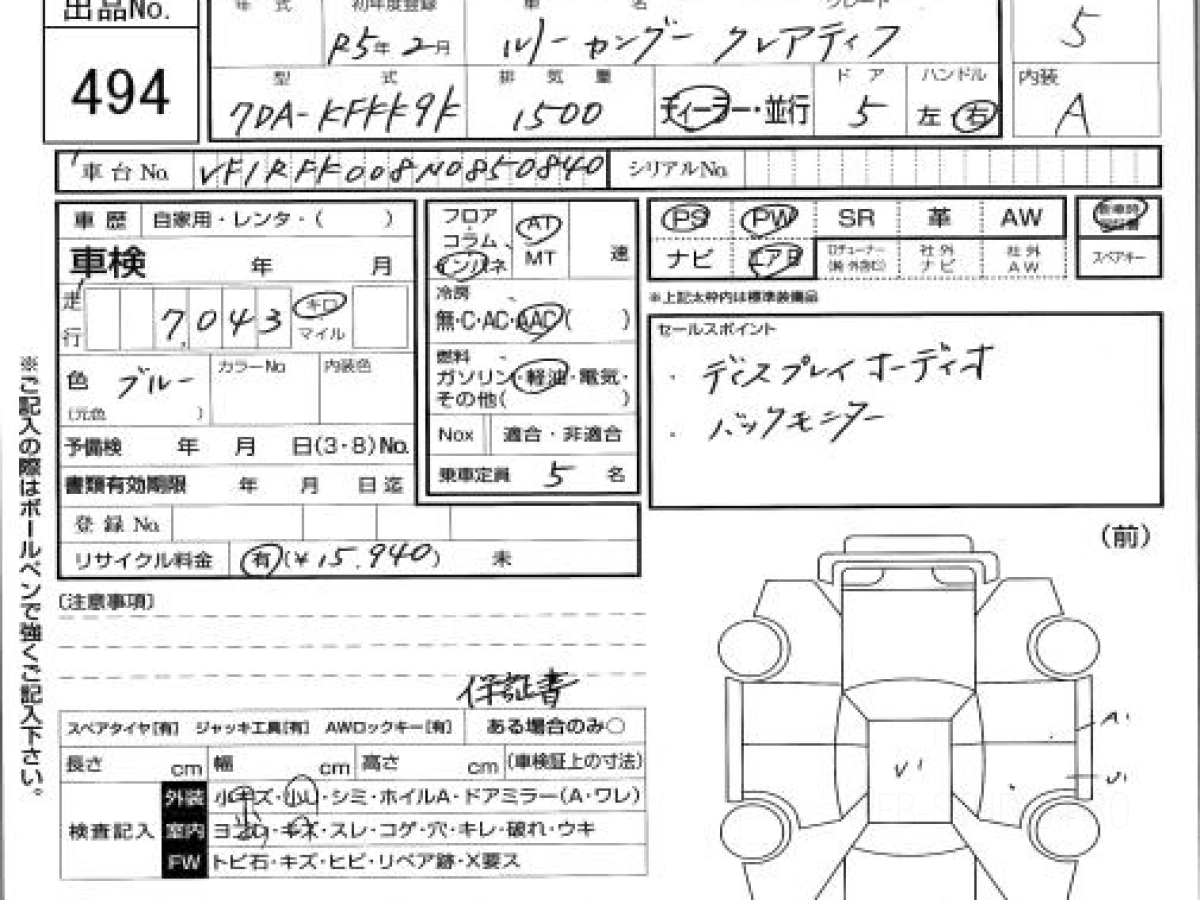 出品No.
494
年 式 初年度登録 車 名 グレード
R5年2月 ルノー カングー クレアティフ 5
型 式 排 気 量 ドア ハンドル 内装
7DA-KFKK9K 1500 ディーラー・並行 5 左 右 A
車台No. VF1RFK008N0850840 シリアルNo.
車歴 自家用・レンタ・( )
車検 年 月
走行 7,043 キロ マイル
色 ブルー カラーNo 内装色
(元色 )
予備検 年 月 日(3・8)No.
書類有効期限 年 月 日迄
登録No.
リサイクル料金 有(¥15,940) 未
フロア・コラム・インパネ AT MT 速
冷房
無・C・AC・AAC( )
燃料
ガソリン・軽油・電気・
その他( )
Nox 適合・非適合
乗車定員 5 名
PS PW SR 革 AW
ナビ エアB 社外ナビ 社外AW
スペアキー
※上記太枠内は標準装備品
セールスポイント
・ディスプレイオーディオ
・バックモニター
(前)
A1
U1
V1
〔注意事項〕
保証書
スペアタイヤ[有] ジャッキ工具[有] AWロックキー[有] ある場合のみ○
長さ cm 幅 cm 高さ cm (車検証上の寸法)
検査記入
外装 小キズ・小凹・シミ・ホイルA・ドアミラー(A・ワレ)
室内 ヨゴレ・キズ・スレ・コゲ・穴・キレ・破れ・ウキ
FW トビ石・キズ・ヒビ・リペア跡・X要ス
※ご記入の際はボールペンで強くご記入下さい。